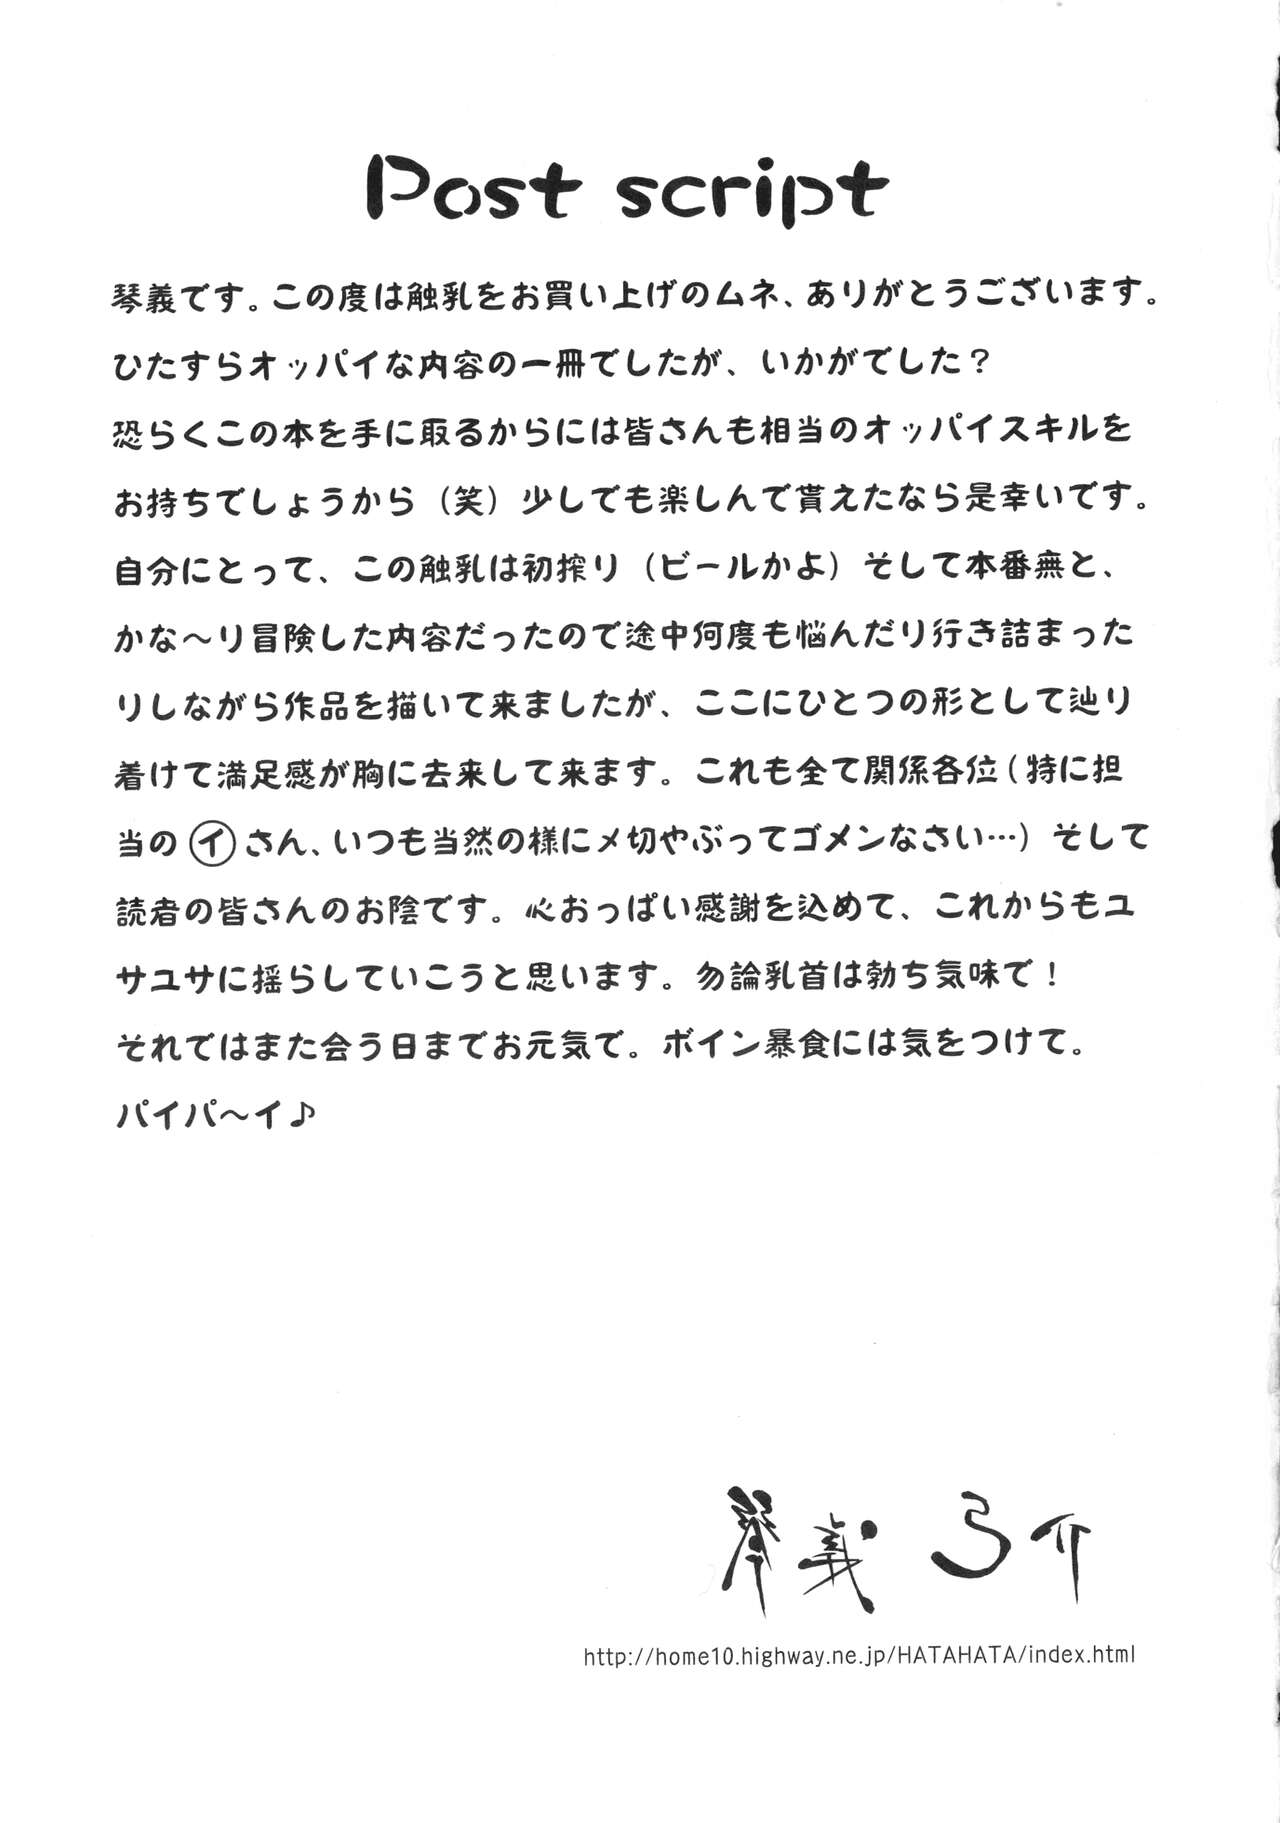 Post script
琴義です。この度は触乳をお買い上げのムネ、ありがとうございます。
ひたすらオッパイな内容の一冊でしたが、いかがでした？
恐らくこの本を手に取るからには皆さんも相当のオッパイスキルを
お持ちでしょうから（笑）少しでも楽しんで貰えたなら是幸いです。
自分にとって、この触乳は初搾り（ビールかよ）そして本番無と、
かな〜り冒険した内容だったので途中何度も悩んだり行き詰まった
りしながら作品を描いて来ましたが、ここにひとつの形として辿り
着けて満足感が胸に去来して来ます。これも全て関係各位（特に担
当の㋑さん、いつも当然の様に〆切やぶってゴメンなさい…）そして
読者の皆さんのお陰です。心おっぱい感謝を込めて、これからもユ
サユサに揺らしていこうと思います。勿論乳首は勃ち気味で！
それではまた会う日までお元気で。ボイン暴食には気をつけて。
パイパ〜イ♪
琴義 弓介
http://home10.highway.ne.jp/HATAHATA/index.html